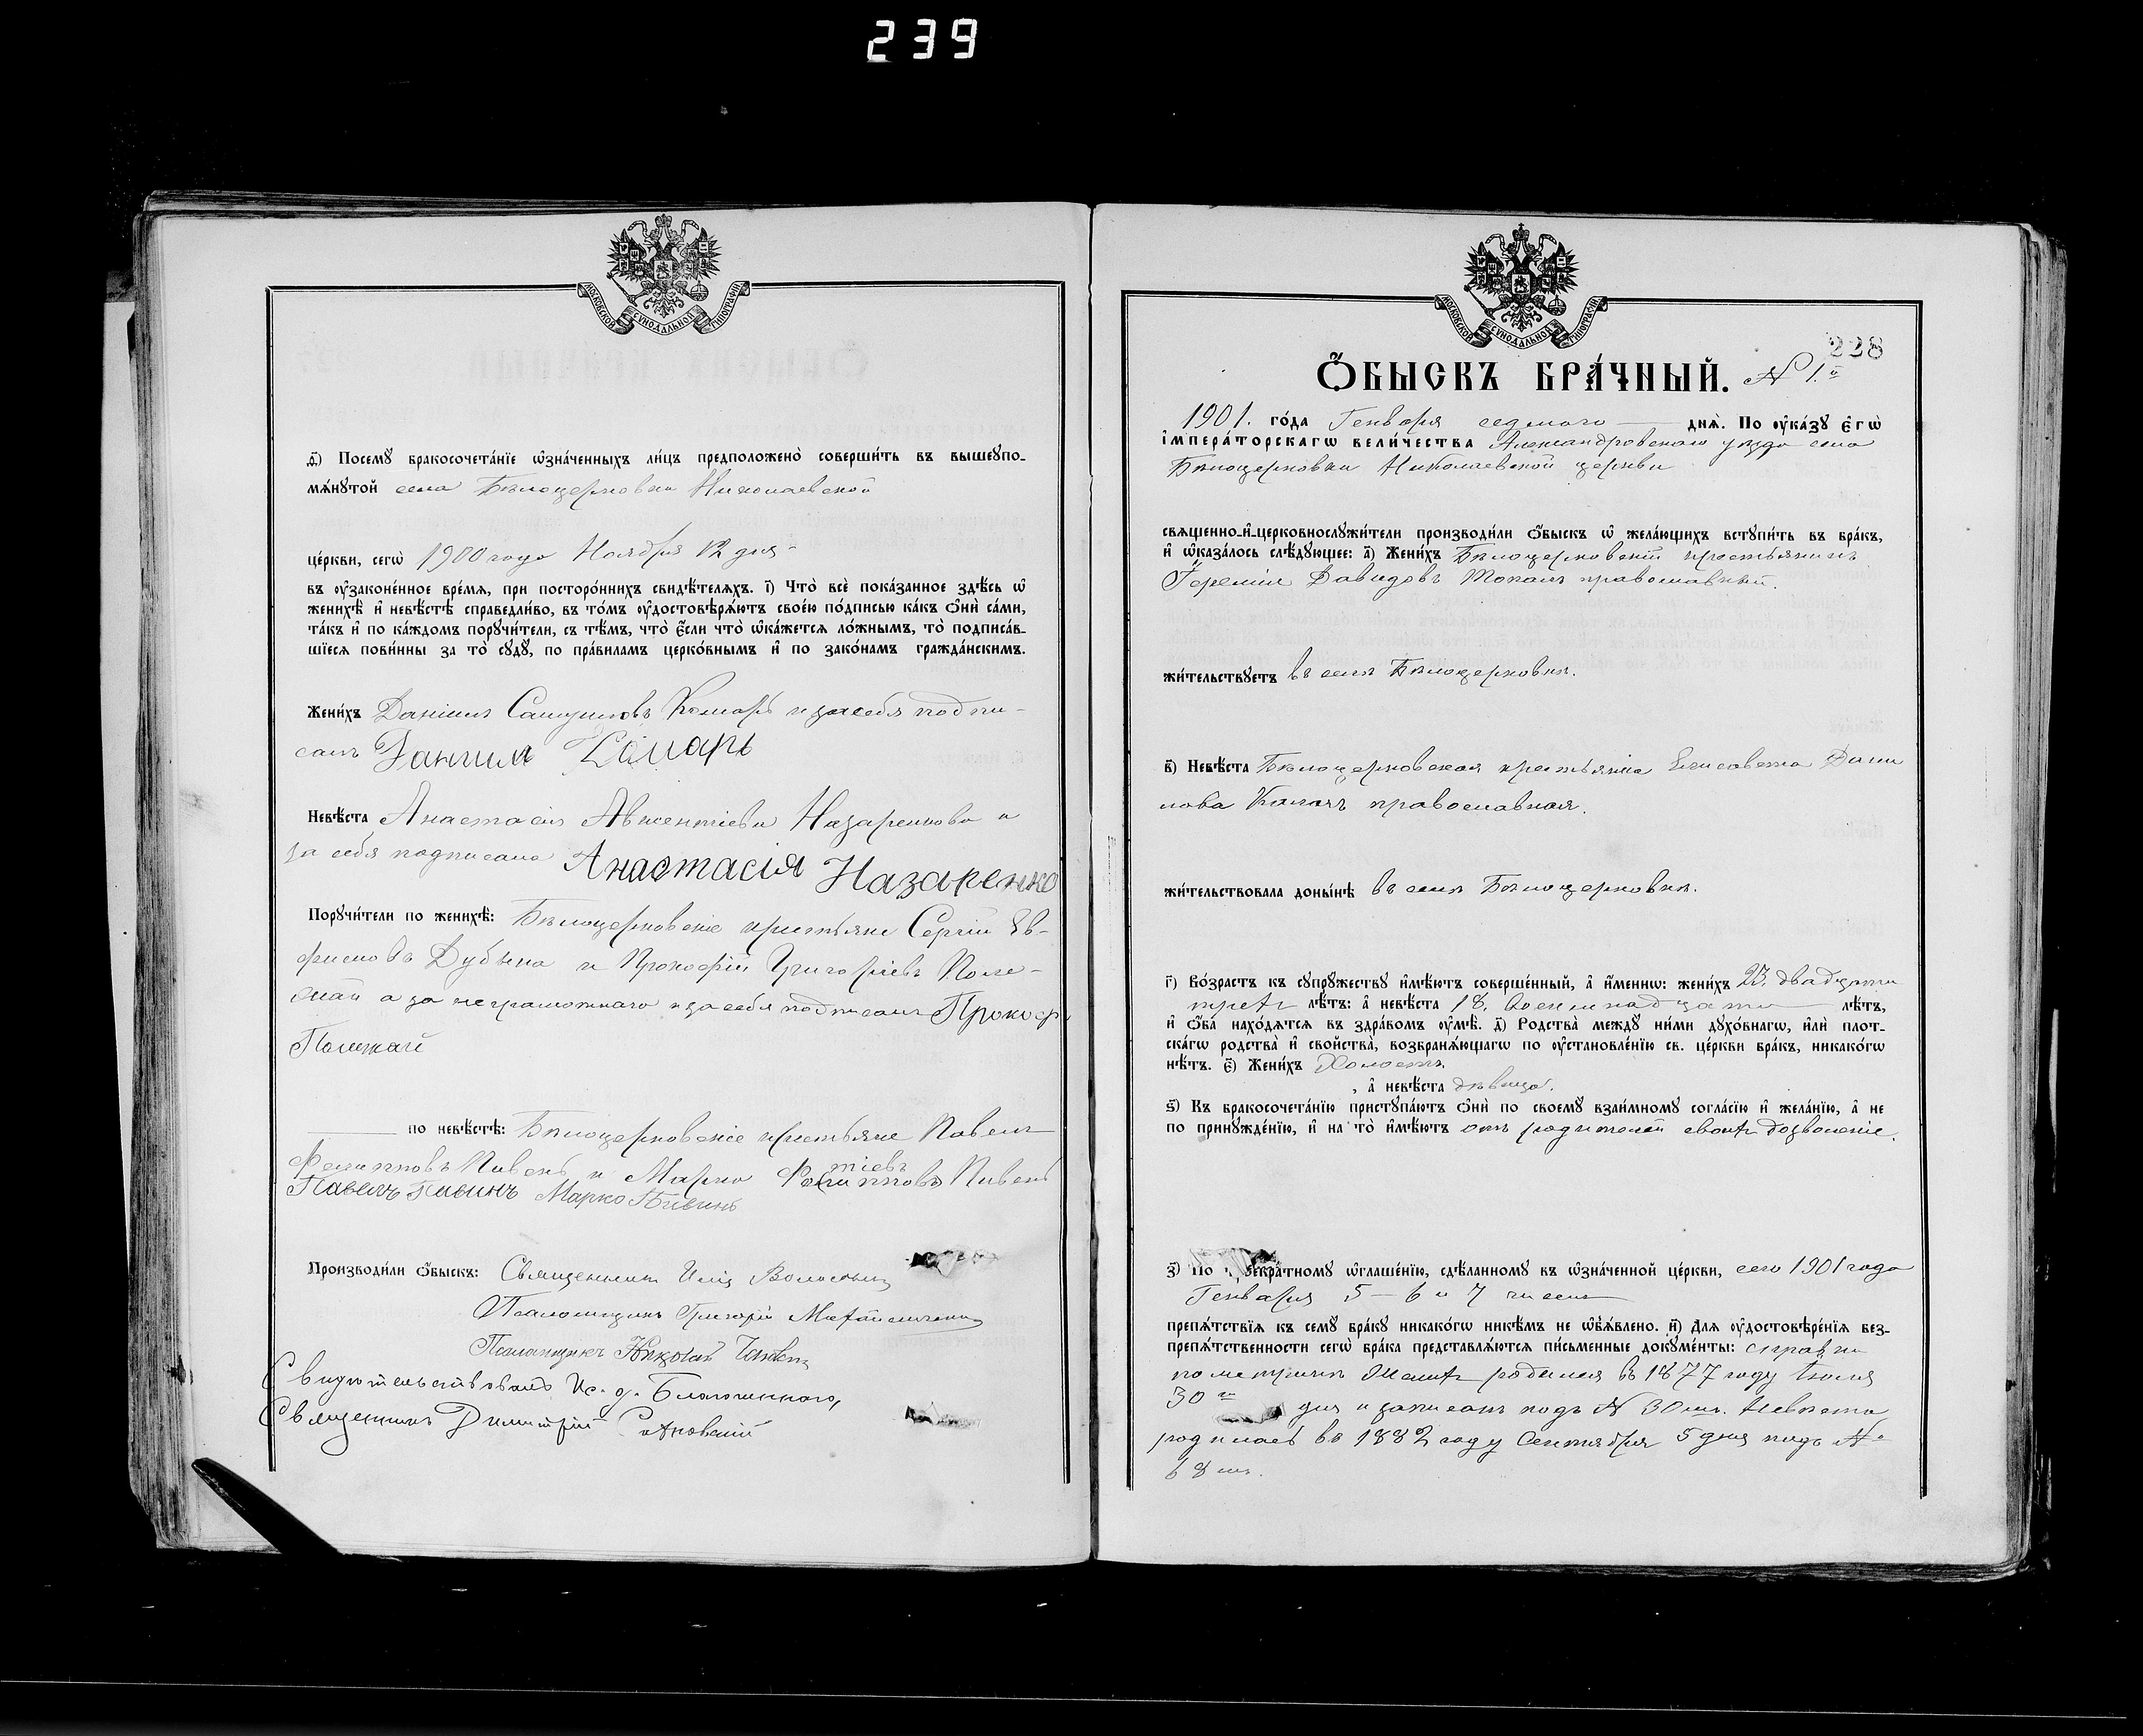 239
МОСКОВСКОЙ СѴНОДАЛЬНОЙ ТИПОГРАФІИ
Ѳ҃) Посемꙋ бракосочета́нїе ѡ҆зна́ченныхъ ли́цъ предположено̀ соверши́ть въ вышеꙋпо-
мѧ́нꙋтой села Бѣлоцерковки Николаевской
це́ркви, сегѡ̀ 1900 года Ноября 12 дня
въ ᲂу҆законе́нное вре́мѧ, при посторо́ннихъ свидѣ́телѧхъ. і҃) Что̀ всѐ пока́занное здѣ́сь ѡ҆
женихѣ̀ и҆ невѣ́стѣ справедли́во, въ то́мъ ᲂу҆достовѣрѧ́ютъ свое́ю по́дписью ка́къ ѻ҆нѝ са́ми,
та́къ и҆ по ка́ждомъ порꙋчи́тели, съ тѣ́мъ, что̀ є҆́сли что̀ ѡ҆ка́жетсѧ ло́жнымъ, то̀ подписа́в-
шїесѧ пови́нны за то̀ сꙋдꙋ̀, по пра́виламъ церко́внымъ и҆ по зако́намъ гражда́нскимъ.
Жени́хъ Даніилъ Самуиловъ Комарь и за себя подпи-
салъ Данилъ Комарь
Невѣ́ста Анастасія Авксентіева Назаренкова и
за себя подписала Анастасія Назаренко
Порꙋчи́тели по женихѣ̀: Бѣлоцерковскіе крестьяне Сергій Ев-
фимовъ Дубына и Прокофій Григорьевъ Поле-
жай а за неграмотнаго и за себя подписалъ Прокоф
Полежай
по невѣ́стѣ: Бѣлоцерковскіе крестьяне Павелъ
Филипповъ Пивень и Марко Филипповъ тіевъ Пивень
Павелъ Пивинъ Марко Пивинъ
Производи́ли ѻ҆́быскъ: Священникъ Илія
Псаломщикъ Григорій
Псаломщикъ Николай
Свидѣтельствовалъ Ис. д. Благочиннаго,
Священникъ Димитрій
МОСКОВСКОЙ СѴНОДАЛЬНОЙ ТИПОГРАФІИ
228
Ѻ҆́БЫСКЪ БРА́ЧНЫЙ. № 1.й
1901. го́да Генваря седьмого днѧ̀. По ᲂу҆ка́зꙋ є҆гѡ̀
і҆мпера́торскагѡ вели́чества Александровскаго уѣзда села
Бѣлоцерковки Николаевской церкви
свѧщенно-и҆-церковнослꙋжи́тели производи́ли ѻ҆́быскъ ѡ҆ жела́ющихъ встꙋпи́ть въ бра́къ,
и҆ ѡ҆каза́лось слѣ́дꙋющее: а҃) Жени́хъ Бѣлоцерковскій крестьянинъ
Іеремія Давидовъ Токалъ православный.
жи́тельствꙋетъ въ селѣ Бѣлоцерковкѣ.
в҃) Невѣ́ста Бѣлоцерковская крестьянка Елисавета Дани
лова Калачъ православная.
жи́тельствовала доны́нѣ въ селѣ Бѣлоцерковкѣ.
г҃) Во́зрастъ къ сꙋпрꙋжествꙋ и҆мѣ́ютъ соверше́нный, а҆ и҆́меннѡ: жени́хъ 23. двадцати
трехъ лѣ́тъ: а҆ невѣ́ста 18. восемнадцати лѣ́тъ,
и҆ ѻ҆́ба нахо́дѧтсѧ въ здра́вомъ ᲂу҆мѣ̀. д҃) Родства̀ междꙋ ни́ми дꙋхо́внагѡ, и҆лѝ плот-
ска́гѡ родства̀ и҆ сво́йства̀, возбранѧ́ющагѡ по ᲂу҆становле́нїю св. це́ркви бра́къ, никако́гѡ
нѣ́тъ. є҃) Жени́хъ Холостъ
, а҆ невѣ́ста дѣвица.
ѕ҃) Къ бракосочета́нїю пристꙋпа́ютъ ѻ҆нѝ по своемꙋ̀ взаи́мномꙋ согла́сїю и҆ жела́нїю, а҆ не
по принꙋжде́нїю, и҆ на то̀ и҆мѣ́ютъ отъ родителей своихъ дозволеніе.
з҃) По трекра́тномꙋ ѡ҆глаше́нїю, сдѣ́ланномꙋ въ ѡ҆зна́ченной це́ркви, сего 1901 года
Генваря 5 – 6 и 7 чиселъ
препѧ́тствїѧ къ семꙋ̀ бра́кꙋ никако́гѡ никѣ́мъ не ѡ҆б̾ѧ́влено. и҃) Длѧ ᲂу҆достовѣре́нїѧ без-
препѧ́тственности сегѡ̀ бра́ка представлѧ́ютсѧ пи́сьменные докꙋме́нты: справки
по метрикѣ Женихъ родился въ 1877 году Іюня
30 го дня и записанъ подъ № 30 мъ. Невѣста
родилась въ 1882 году Сентября 5 дня подъ №
68 мъ.